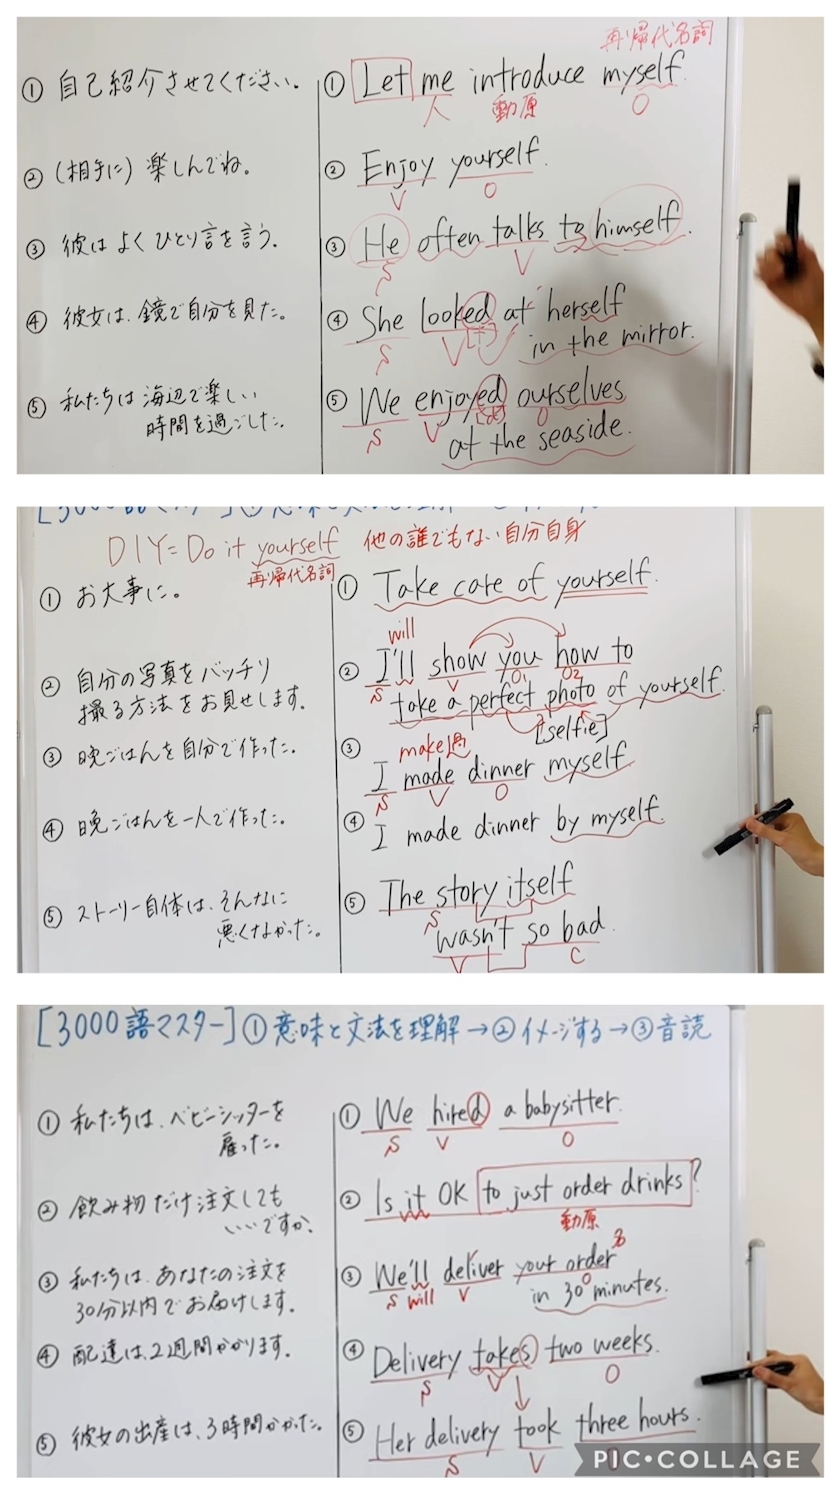 再帰代名詞
① 自己紹介させてください。
① Let me introduce myself.
人 動原 O
② (相手に) 楽しんでね。
② Enjoy yourself.
V O
③ 彼は よく ひとり言を言う。
③ He often talks to himself.
S V
④ 彼女は、鏡で自分を見た。
④ She looked at herself
S V [t]
in the mirror.
⑤ 私たちは 海辺で楽しい
時間を過ごした。
⑤ We enjoyed ourselves
S V [d] O
at the seaside.
DIY = Do it yourself 他の誰でもない自分自身
再帰代名詞
① お大事に。
① Take care of yourself.
will
② 自分の写真をバッチリ
撮る方法をお見せします。
② I'll show you how to
S V O1 O2
take a perfect photo of yourself.
[selfie]
③ 晩ごはんを自分で作った。
③
make過
I made dinner myself.
S V O
④ 晩ごはんを一人で作った。
④ I made dinner by myself.
⑤ ストーリー自体は、そんなに
悪くなかった。
⑤ The story itself
S
wasn't so bad.
V C
[3000語マスター] ① 意味と文法を理解 → ② イメージする → ③ 音読
① 私たちは、ベビーシッターを
雇った。
① We hired a babysitter.
S V O
② 飲み物だけ注文しても
いいですか。
② Is it OK to just order drinks?
動原
③ 私たちは、あなたの注文を
30分以内でお届けします。
③ We'll deliver your order
名
S will V O
in 30 minutes.
④ 配達は、2週間かかります。
④ Delivery takes two weeks.
S V O
⑤ 彼女の出産は、3時間かかった。
⑤ Her delivery took three hours.
S V
PIC•COLLAGE